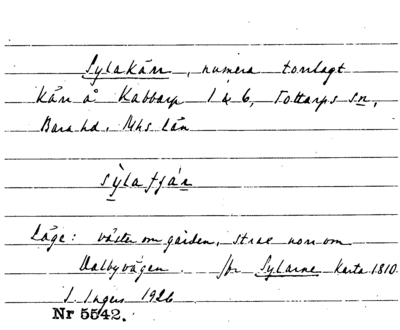 Sylakärr, numera torrlagt
kärr å Kabbarp 1 & 6, Tottarps sn,
Bara hd. Mhs län
Läge: väster om gården, strax norr om
Dalbyvägen. Jfr Sylarne karta 1810.
I. Ingers 1926
Nr 5542.